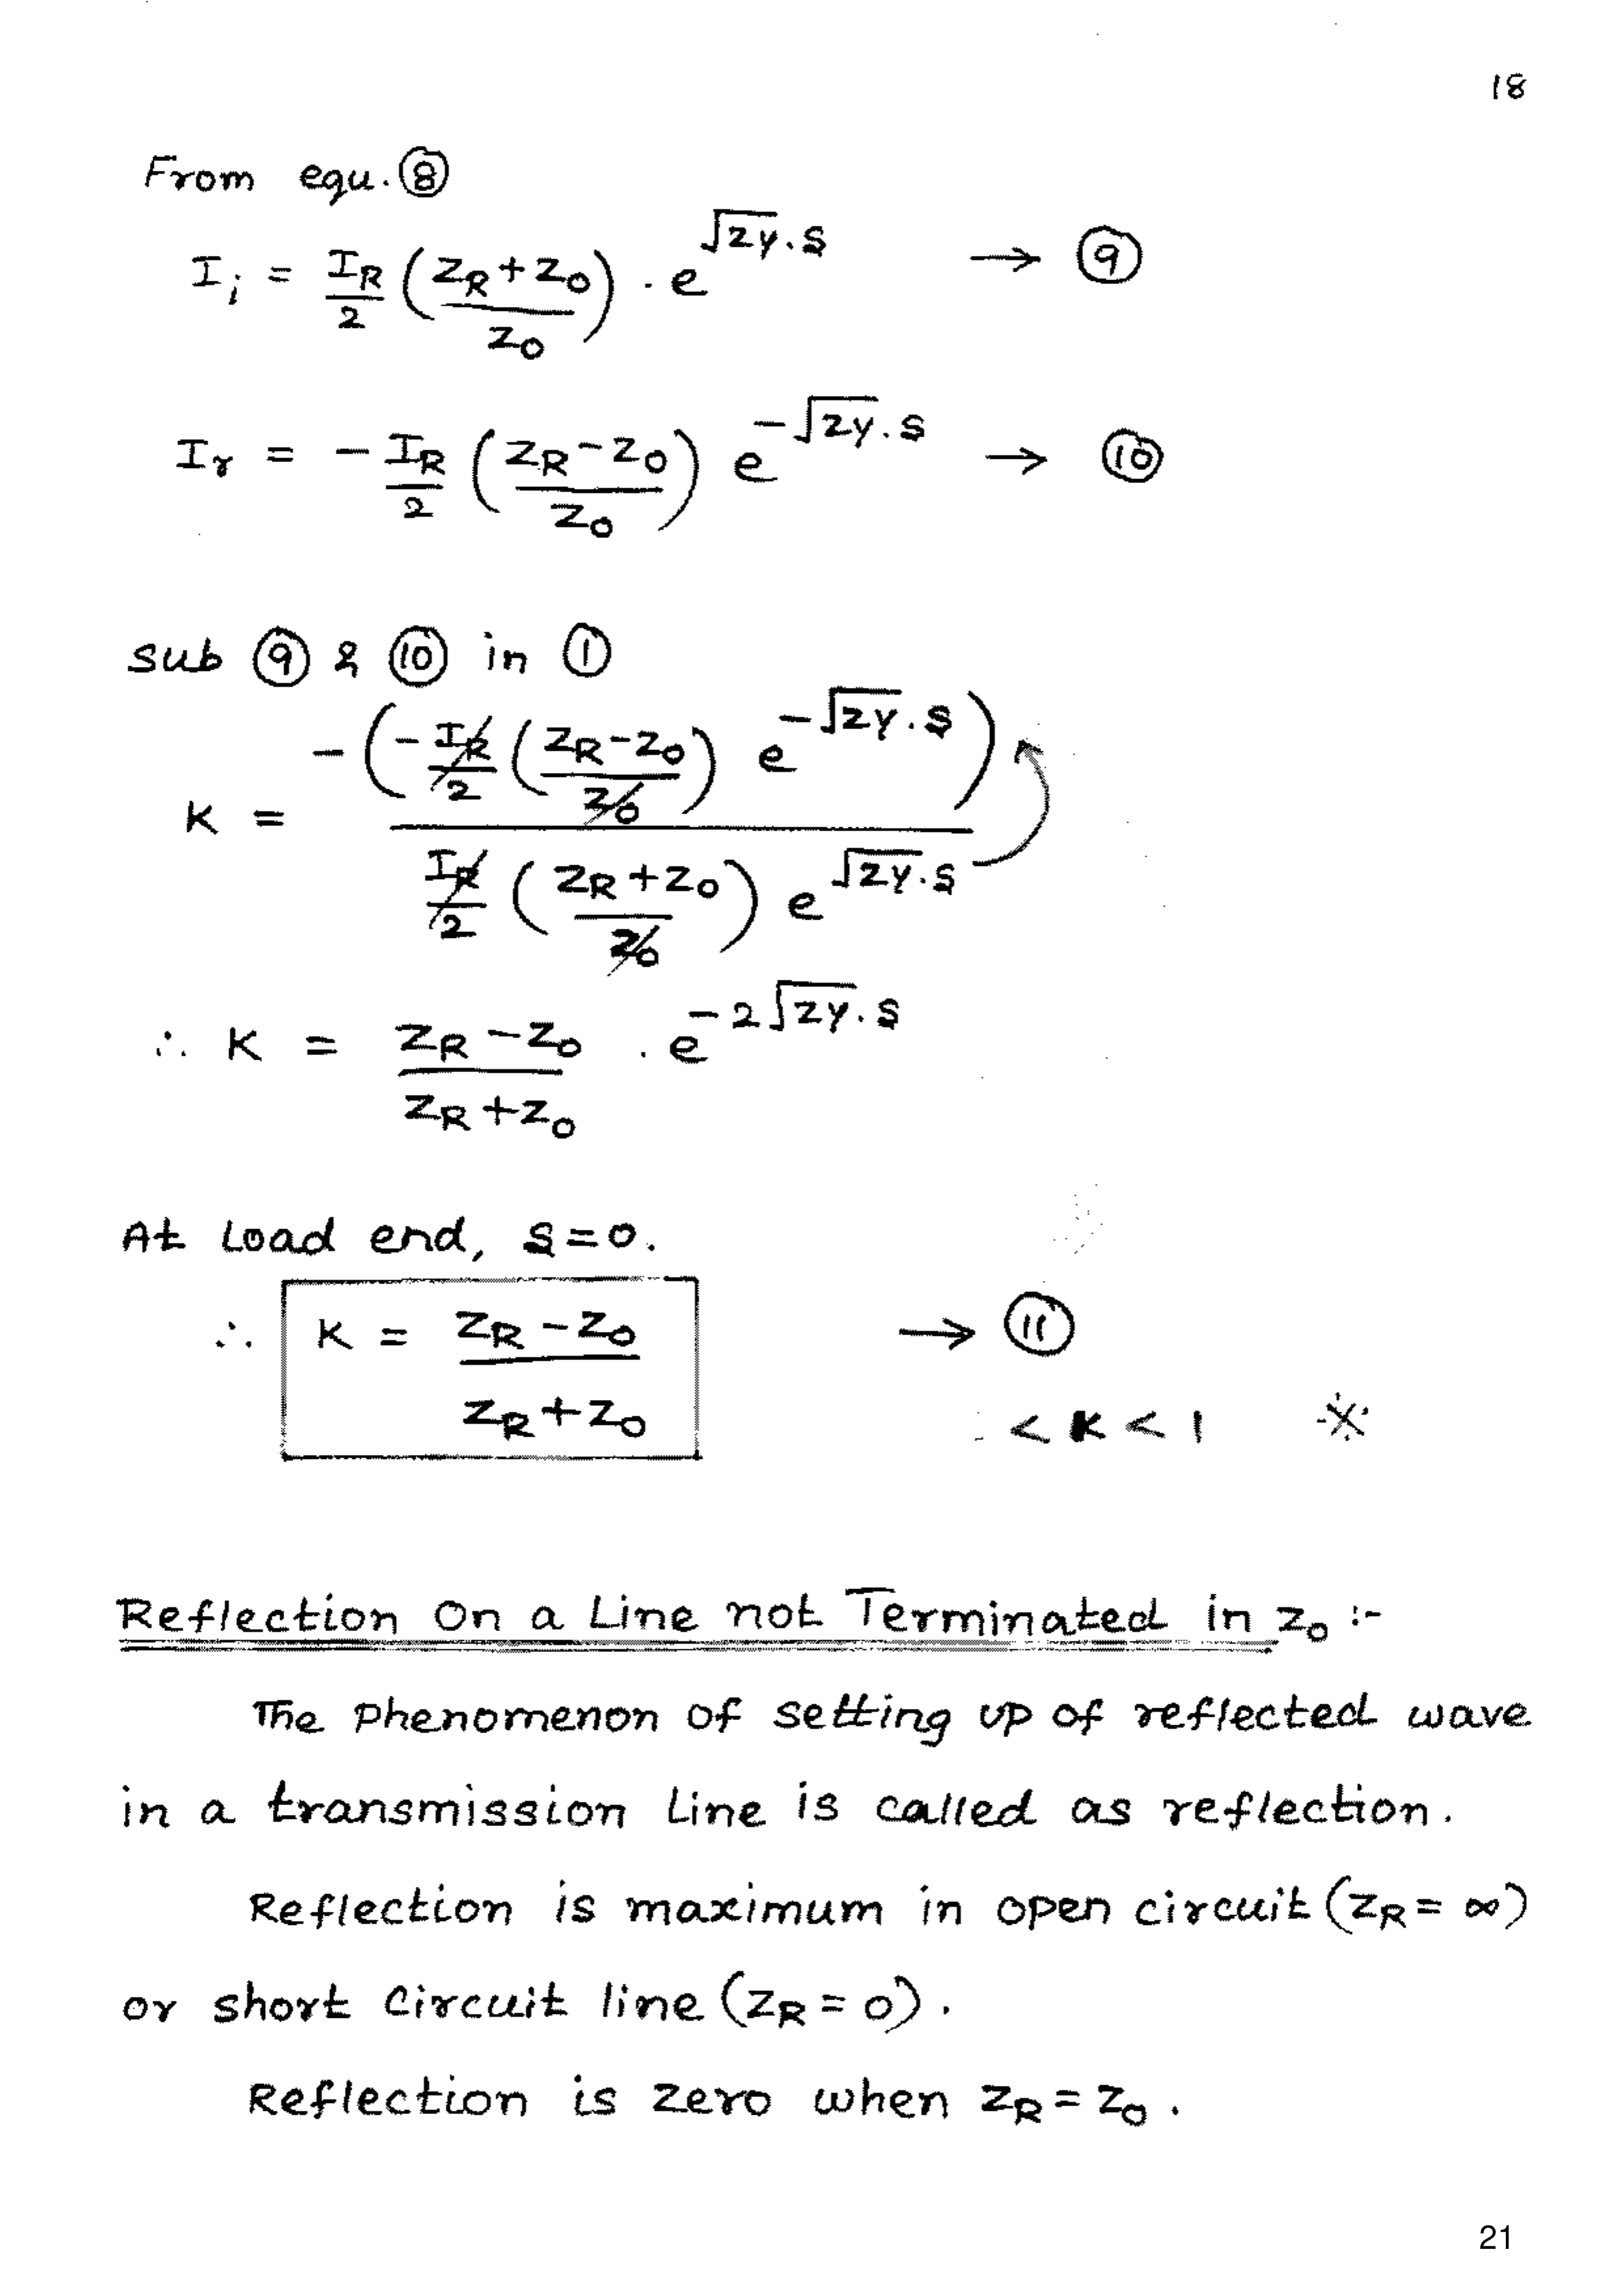 18
From equ. ⑧
I_i = I_R/2 (Z_R + Z_0 / Z_0) . e^{√ZY . S} → ⑨
I_r = - I_R/2 (Z_R - Z_0 / Z_0) e^{-√ZY . S} → ⑩
Sub ⑨ & ⑩ in ①
K = -(- I_R/2 (Z_R - Z_0 / Z_0) e^{-√ZY . S}) / I_R/2 (Z_R + Z_0 / Z_0) e^{√ZY . S}
∴ K = Z_R - Z_0 / Z_R + Z_0 . e^{-2√ZY . S}
At Load end, S = 0.
∴ K = Z_R - Z_0 / Z_R + Z_0 → ⑪
< K < 1
Reflection On a Line not Terminated in Z_0 :-
The Phenomenon of setting up of reflected wave
in a transmission Line is called as reflection.
Reflection is maximum in open circuit (Z_R = ∞)
or short circuit line (Z_R = 0).
Reflection is zero when Z_R = Z_0 .
21